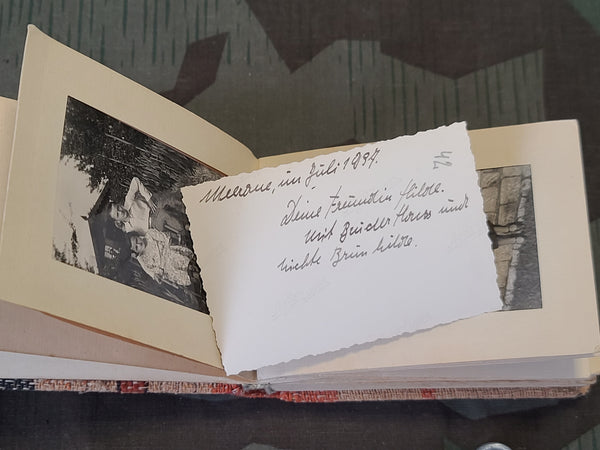 Meerane, im Juli 1937.
Deine Freundin Hilde.
Mit Bruder Horss und
nichte Brunhilde.
42